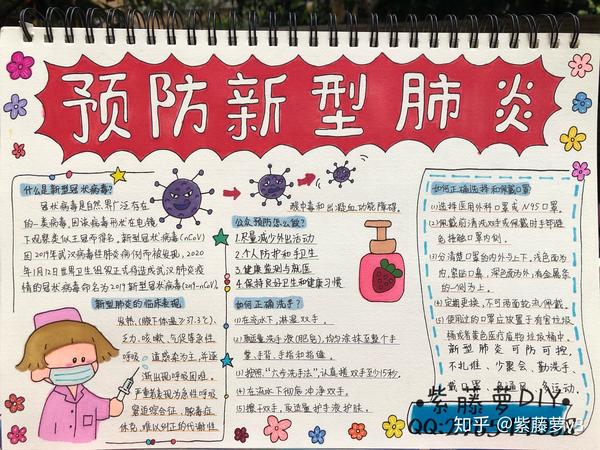 预防新型肺炎
什么是新型冠状病毒?
冠状病毒是自然界广泛存在
的一类病毒,因该病毒形状在电镜
下观察类似王冠而得名。新型冠状病毒(nCoV)
因2019年武汉病毒性肺炎病例而被发现,2020
年1月12日世界卫生组织正式将造成武汉肺炎疫
情的冠状病毒命名为2019新型冠状病毒(2019-nCoV)
新型肺炎的临床表现
发热(腋下体温≥37.3℃)、
乏力、咳嗽、气促等急性
呼吸道感染为主,并逐
渐出现呼吸困难。
严重者表现为急性呼吸
窘迫综合征、脓毒症
休克、难以纠正的代谢性
眼中毒和出凝血功能障碍。
公众预防怎么做?
1.尽量减少外出活动
2.个人防护和手卫生
3.健康监测与就医
4.保持良好卫生和健康习惯
如何正确洗手?
(1)在流水下,淋湿双手。
(2)取适量洗手液(肥皂),均匀涂抹至整个手
掌、手背、手指和指缝。
(3)按照“六步洗手法”,认真搓双手至少15秒。
(4)在流水下彻底冲净双手。
(5)擦干双手,取适量护手液护肤。
如何正确选择和佩戴口罩
(1)选择医用外科口罩或N95口罩。
(2)佩戴前清洗双手或佩戴时手部避
免接触口罩内侧。
(3)分清楚口罩的内外与上下,浅色面为
内,紧贴口鼻,深色面为外,有金属条
的一侧为上。
(4)定期更换,不可两面轮流佩戴。
(5)使用过的口罩应放置于有害垃圾
桶或者黄色医疗废物垃圾桶中。
新型肺炎可防可控,
不扎推、少聚会、勤洗手、
戴口罩、多通风、多运动。
紫藤萝DIY
知乎 @紫藤萝v3